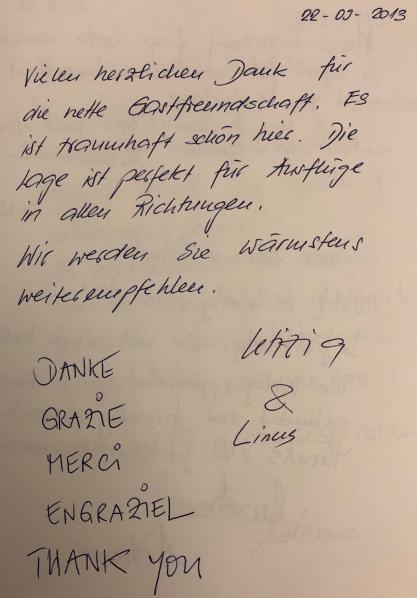 22-09-2013
Vielen herzlichen Dank für
die nette Gastfreundschaft. Es
ist traumhaft schön hier. Die
Lage ist perfekt für Ausflüge
in allen Richtungen.
Wir werden Sie wärmstens
weiterempfehlen.
Letizia
&
Linus
DANKE
GRAZIE
MERCi
ENGRAZIEL
THANK YOU